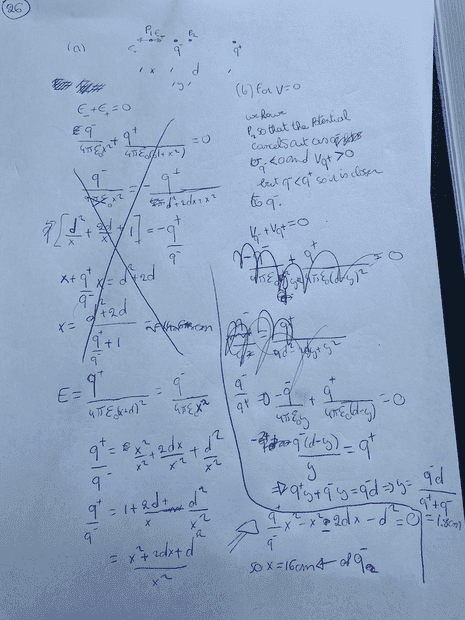 26
(a)
P₁ E₊ P₂
E₋ q⁻ q⁺
x d
y
E₋ + E₊ = 0
q⁻/4πε₀x² + q⁺/4πε₀(d+x²) = 0
q⁻/4πε₀x² = - q⁺/d²+2dx+x²
[d²/x + 2d/x + 1] = -q⁺/q⁻
x + q⁺/q⁻ x = d² + 2d
x = d² + 2d / q⁺/q⁻ + 1
E = q⁺/4πε₀(x+d)² = q⁻/4πε₀x²
q⁺/q⁻ = x²/x² + 2dx/x² + d²/x²
q⁺/q⁻ = 1 + 2d/x + d²/x²
= x² + 2dx + d²/x²
(b) For V=0
we have
P₂ so that the potential
cancels out as
V q⁻ <0 and Vq⁺ >0
but q⁻ < q⁺ so it is closer
to q⁻.
Vq⁻ + Vq⁺ = 0
= 0
q⁻/q⁺ ⇒ -q⁻/4πε₀y + q⁺/4πε₀(d-y) = 0
q⁻(d-y)/y = q⁺
⇒ q⁺y + q⁻y = q⁻d ⇒ y = q⁻d/q⁺+q⁻
= 1.8cm
⇒ q⁺/q⁻ x² - x² - 2dx - d² = 0
so x = 16cm ← of q⁻